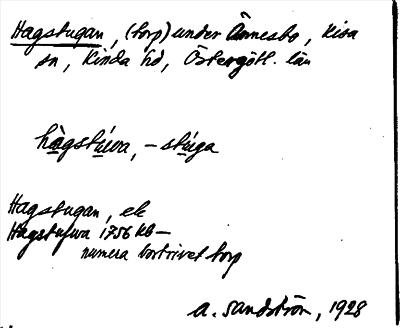 Hagstugan, (torp) under Ånnesbo, Kisa
sn, Kinda hd, Östergötl. län
hàgstúwa, – stúga
Hagstugan, ek
Hagstufwa 1756 kb –
numera bortrivet torp
A. Sandström, 1928